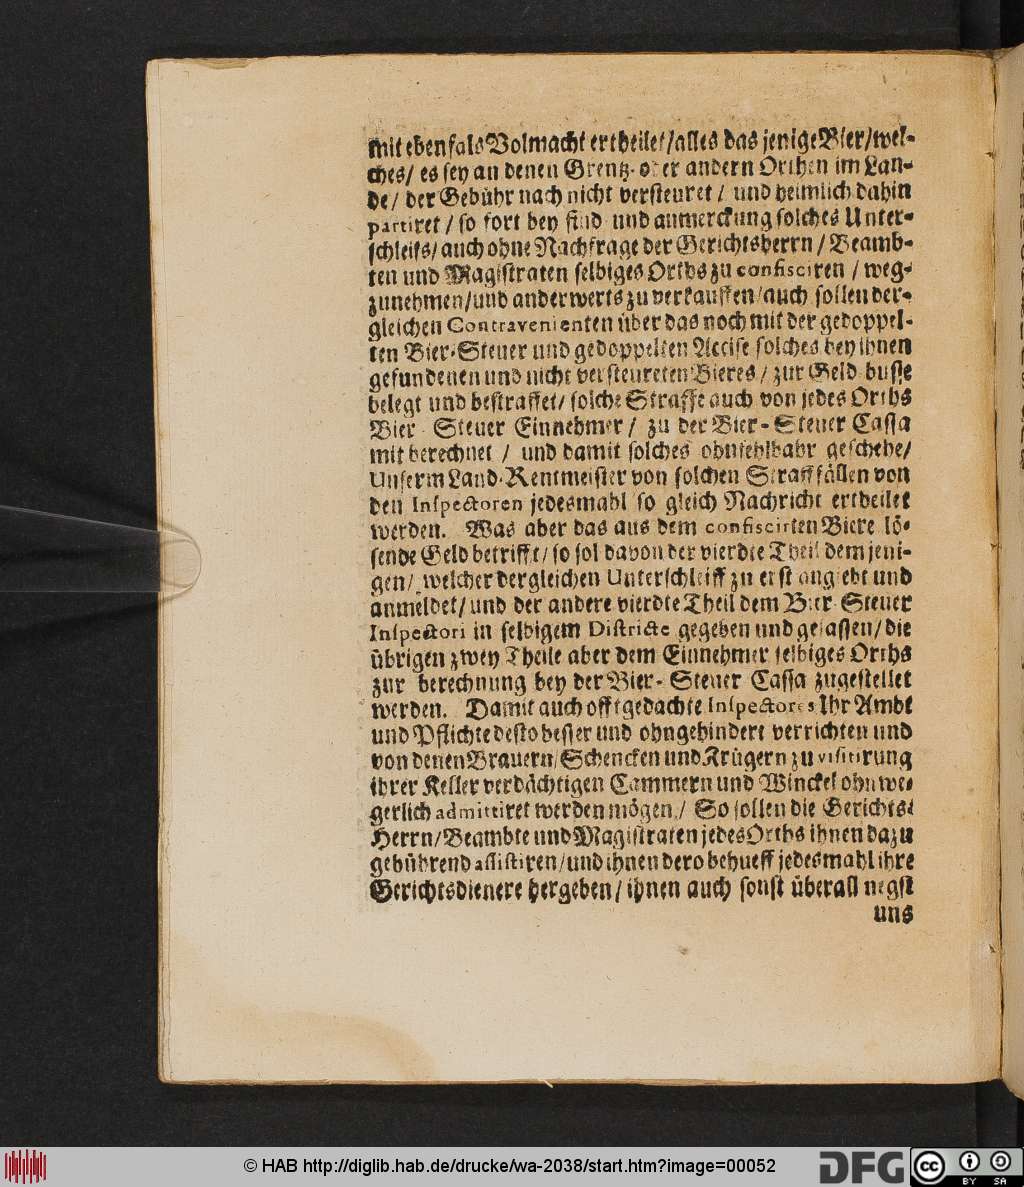 mit ebenfals Volmacht ertheilet/alles das jenige Bier/wel-
ches/ es sey an denen Grentz- oder andern Orthen im Lan-
de/ der Gebühr nach nicht versteuret/ und heimlich dahin
partiret/so fort bey find- und anmerckung solches Unter-
schleifs/auch ohne Nachfrage der Gerichtsherrn/Beamb-
ten und Magistraten selbiges Orths zu confisciren/weg-
zunehmen/und anderwerts zu verkauffen/auch sollen der-
gleichen Contravenienten über das noch mit der gedoppel-
ten Bier-Steuer und gedoppelten Accise solches bey ihnen
gefundenen und nicht versteureten Bieres/ zur Geld-busse
belegt und bestraffet/ solche Straffe auch von jedes Orths
Bier-Steuer Einnehmer/ zu der Bier-Steuer Cassa
mit berechnet/ und damit solches ohnfehlbahr geschehe/
Unserm Land-Rentmeister von solchen Straffällen von
den Inspectoren jedesmahl so gleich Nachricht ertheilet
werden. Was aber das aus dem confiscirten Biere lö-
sende Geld betrifft/so sol davon der vierdte Theil dem jeni-
gen/ welcher dergleichen Unterschleiff zu erst angiebt und
anmeldet/und der andere vierdte Theil dem Bier-Steuer
Inspectori in selbigem Districte gegeben und gelassen/die
übrigen zwey Theile aber dem Einnehmer selbiges Orths
zur berechnung bey der Bier-Steuer Cassa zugestellet
werden. Damit auch offtgedachte Inspectores Ihr Ambt
und Pflichte desto besser und ohngehindert verrichten und
von denen Brauern/Schencken und Krügern zu visitirung
ihrer Keller verdächtigen Cammern und Winckel ohnwei-
gerlich admittiret werden mögen/ So sollen die Gerichts-
Herrn/Beambte und Magistraten jedes Orths ihnen dazu
gebührend assistiren/und ihnen dero behueff jedesmahl ihre
Gerichtsdienere hergeben/ihnen auch sonst überall negst
uns
© HAB http://diglib.hab.de/drucke/wa-2038/start.htm?image=00052
DFG
cc BY SA